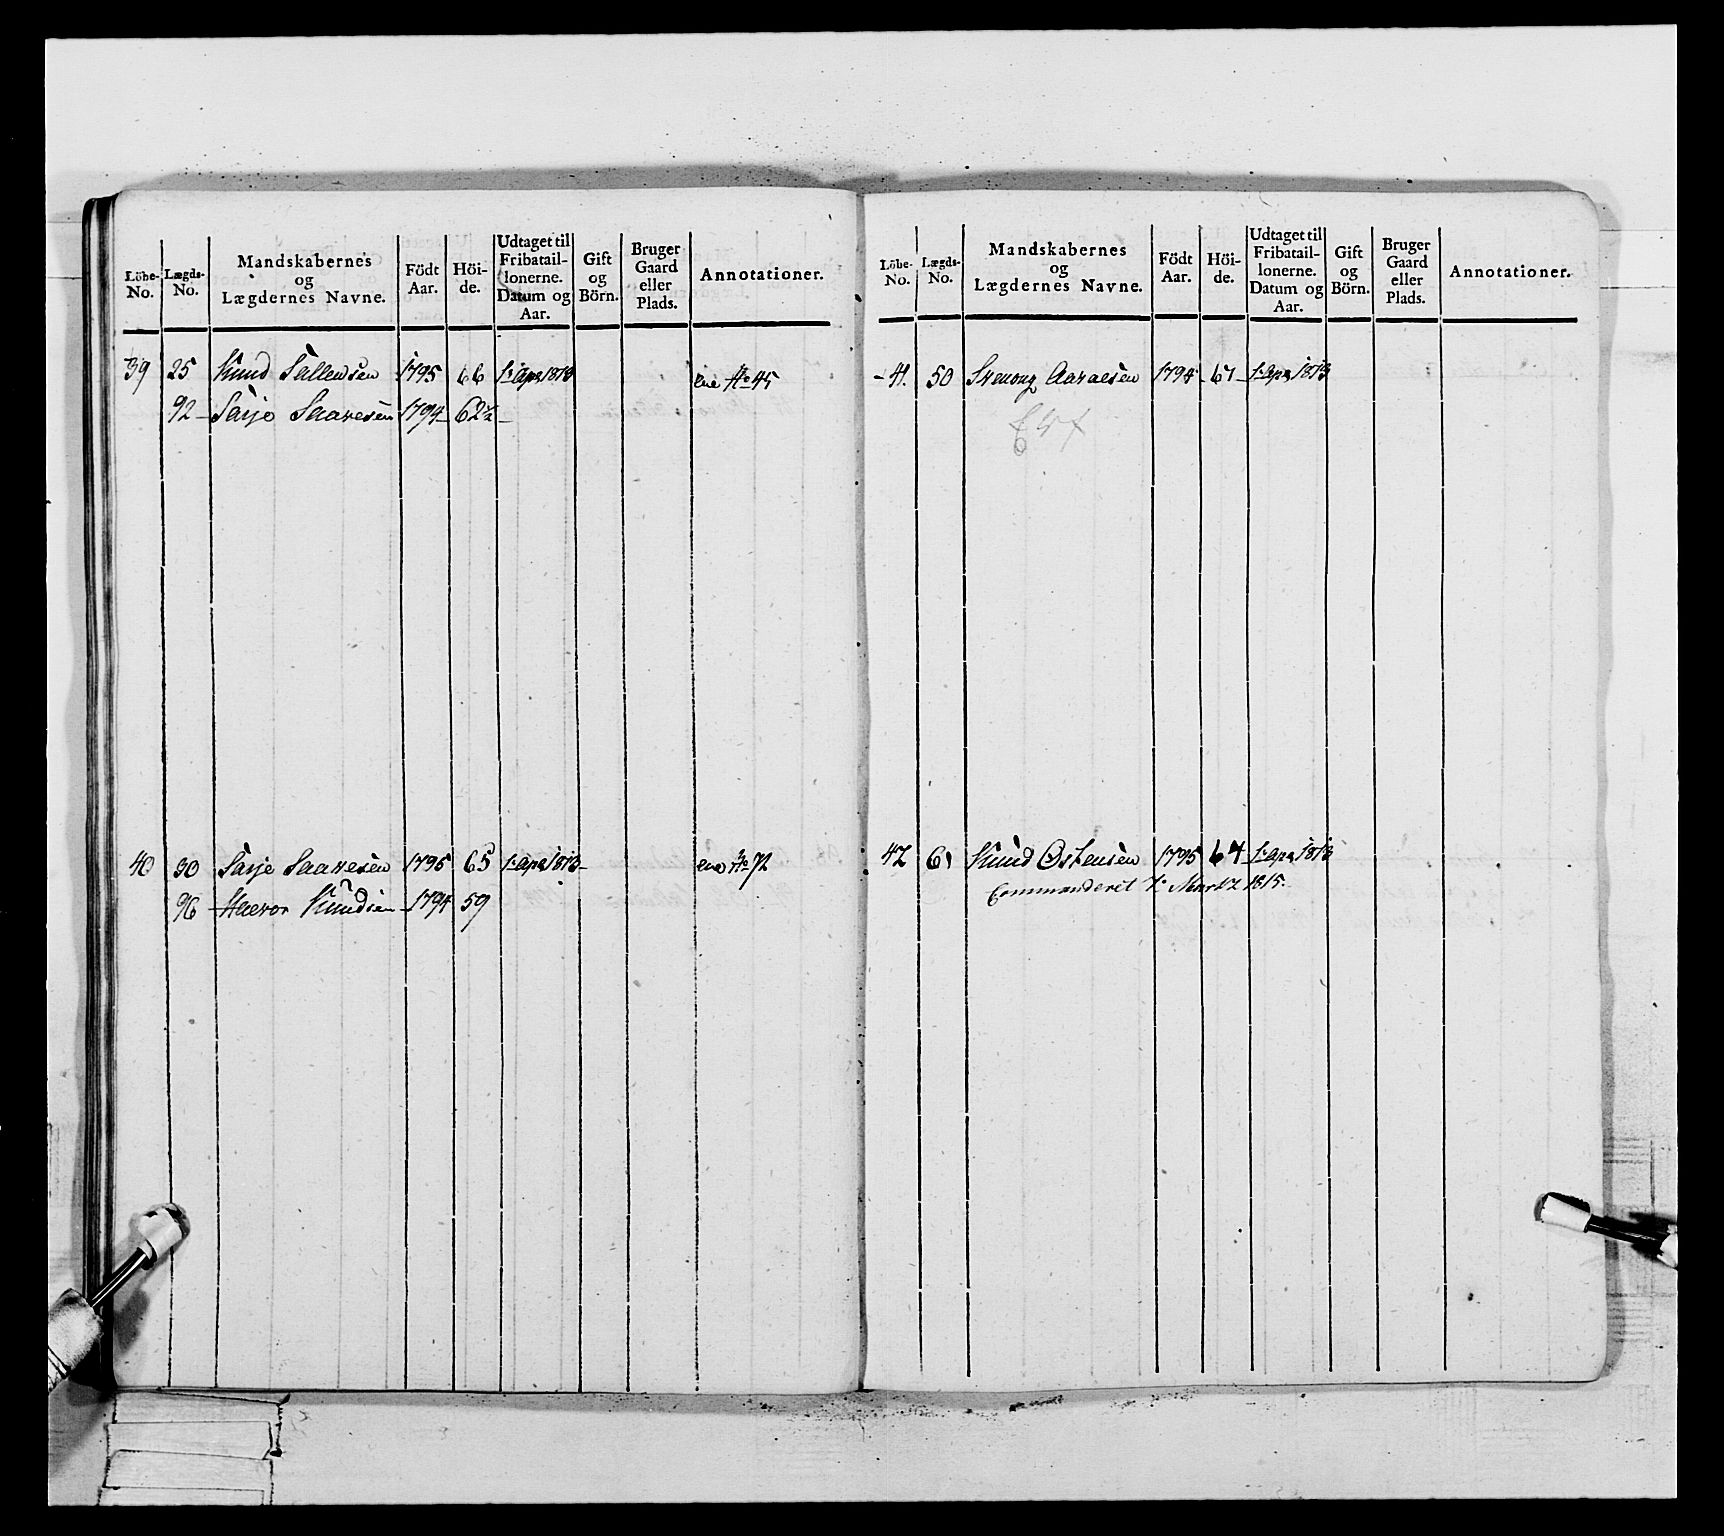 Löbe- No. Lægds- No. Mandskabernes og Lægdernes Navne. Födt Aar. Höi- de. Udtaget til Fribatail- lonerne. Datum og Aar. Gift og Börn. Bruger Gaard eller Plads. Annotationer.
39 25 Knud Tallevsen 1795 66 1 Apr 1813 No 45
92 Tarje Taaresen 1794 62½
40 30 Tarje Taaresen 1795 65 1 Apr 1813 No 72
96 Haavor Knudsen 1794 59
Löbe- No. Lægds- No. Mandskabernes og Lægdernes Navne. Födt Aar. Höi- de. Udtaget til Fribatail- lonerne. Datum og Aar. Gift og Börn. Bruger Gaard eller Plads. Annotationer.
41. 50 Svenong 1794 1 Apr 1813
42 61 Knud Østensen 1795 64 1 Apr 1813
Commanderet Martz 1815.